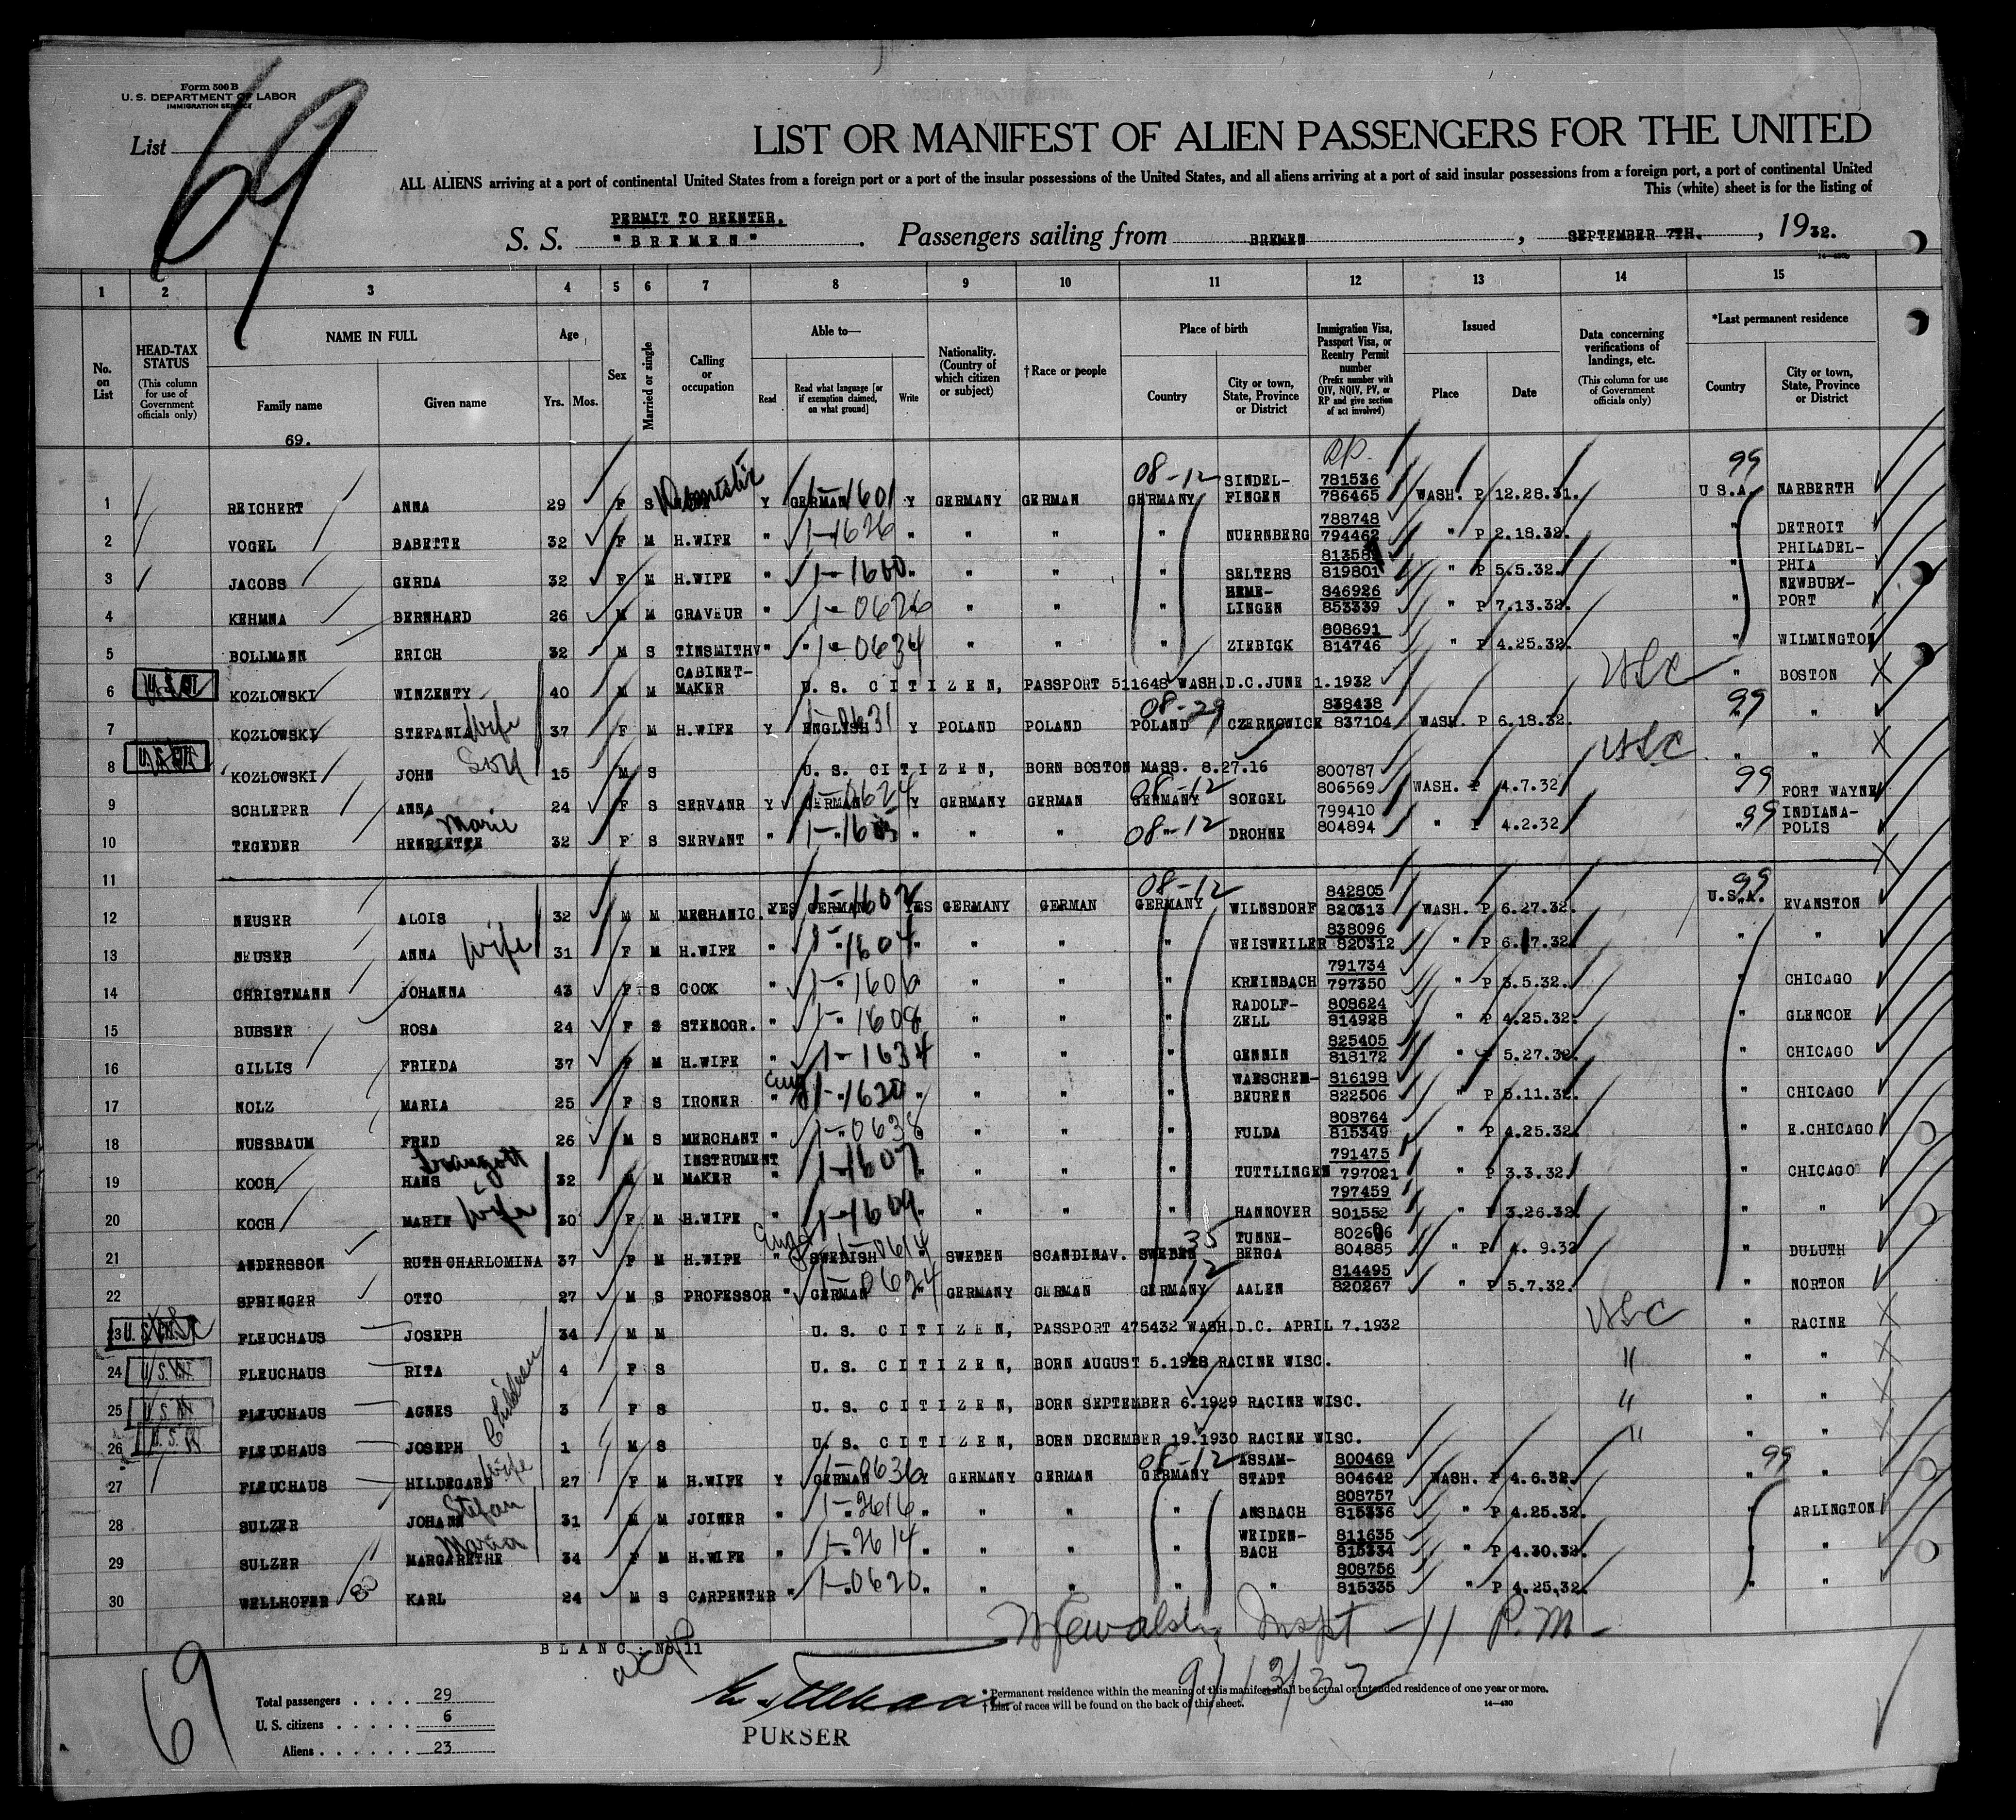 Form 500 B
U. S. DEPARTMENT OF LABOR
IMMIGRATION SERVICE
List 69
LIST OR MANIFEST OF ALIEN PASSENGERS FOR THE UNITED
ALL ALIENS arriving at a port of continental United States from a foreign port or a port of the insular possessions of the United States, and all aliens arriving at a port of said insular possessions from a foreign port, a port of continental United
This (white) sheet is for the listing of
PERMIT TO REENTER.
S. S. "BREMEN" . Passengers sailing from BREMEN , SEPTEMBER 7TH. , 1932.
1 2 3 4 5 6 7 8 9 10 11 12 13 14 15
No. on List
HEAD-TAX STATUS (This column for use of Government officials only)
NAME IN FULL Family name Given name
Age Yrs. Mos.
Sex
Married or single
Calling or occupation
Able to— Read Read what language [or if exemption claimed, on what ground] Write
Nationality. (Country of which citizen or subject)
†Race or people
Place of birth Country City or town, State, Province or District
Immigration Visa, Passport Visa, or Reentry Permit number (Prefix number with QIV, NQIV, PV, or RP and give section of act involved)
Issued Place Date
Data concerning verifications of landings, etc. (This column for use of Government officials only)
*Last permanent residence Country City or town, State, Province or District
69.
RP.
1 REICHERT ANNA 29 F S Domestic Y GERMAN 1-1601 Y GERMANY GERMAN 08-12 GERMANY SINDELFINGEN 781536 786465 WASH. P 12.28.31. 99 U.S.A. NARBERTH
2 VOGEL BABETTE 32 F M H.WIFE " 1-1626 " " " " NUERNBERG 788748 794462 " P 2.18.32. " DETROIT
3 JACOBS GERDA 32 F M H.WIFE " 1-1600 " " " " SELTERS 819801 " P 5.5.32. " PHILADEL-PHIA
4 KEHMNA BERNHARD 26 M M GRAVEUR " 1-0626 " " " HEME-LINGEN 846926 853339 " P 7.13.32. " NEWBURY-PORT
5 BOLLMANN ERICH 32 M S TINSMITH " 1-0634 " " " ZIEBIGK 808691 814746 " P 4.25.32. " WILMINGTON
6 U.S.CIT KOZLOWSKI WINZENTY 40 M M CABINET-MAKER U. S. CITIZEN, PASSPORT 511648 WASH.D.C.JUNE 1.1932 USC " BOSTON
7 KOZLOWSKI STEFANIA Wife 37 F M H.WIFE Y ENGLISH 1-0631 Y POLAND POLAND 08-29 POLAND CZERNOWICE 838438 837104 WASH. P 6.18.32. 99 " "
8 U.S.CIT KOZLOWSKI JOHN Son 15 M S U. S. CITIZEN, BORN BOSTON MASS. 8.27.16 USC " "
9 SCHLEPER ANNA 24 F S SERVANR Y GERMAN 1-0624 Y GERMANY GERMAN 08-12 GERMANY SOEGEL 800787 806569 WASH. P 4.7.32 99 FORT WAYNE
10 TEGEDER Marie HENRIETTE 32 F S SERVANT " " " " 08-12 DROHNE 799410 804894 " P 4.2.32 99 INDIANA-POLIS
11
12 NEUSER ALOIS 32 M M MECHANIC. YES GERMAN 1-1602 YES GERMANY GERMAN 08-12 GERMANY WILNSDORF 842805 820313 WASH. P 6.27.32. 99 U.S.A. EVANSTON
13 NEUSER ANNA Wife 31 F M H.WIFE " 1-1604 " " " " WEISWEILER 838096 820312 " P " "
14 CHRISTMANN JOHANNA 43 F S COOK " 1-1606 " " " KREINBACH 791734 797350 " P 3.5.32. " CHICAGO
15 BUBSER ROSA 24 F S STENOGR. " 1-1608 " " " RADOLF-ZELL 808624 814928 " P 4.25.32. " GLENCOE
16 GILLIS FRIEDA 37 F M H.WIFE " 1-1634 " " " GENNIN 825405 818172 " P 5.27.32. " CHICAGO
17 NOLZ MARIA 25 F S IRONER " Eng 1-1620 " " " " WAESCHEN-BEUREN 816198 822506 " P 5.11.32. " CHICAGO
18 NUSSBAUM FRED 26 M S MERCHANT " 1-0638 " " " FULDA 808764 815349 " P 4.25.32. " E.CHICAGO
19 KOCH HANS 32 M M INSTRUMENT MAKER " 1-1607 " " " " TUTTLINGEN 791475 797021 " P 3.3.32. " CHICAGO
20 KOCH MARIE Wife 30 F M H.WIFE " 1-1609 " " " " HANNOVER 797459 801552 " P 3.26.32. " "
21 ANDERSSON RUTH CHARLOMINA 37 F M H.WIFE " Eng SWEDISH 1-0614 SWEDEN SCANDINAV. SWEDEN 35 TUNNE-BERGA 802606 804885 " P 4. 9.32 " DULUTH
22 SPRINGER OTTO 27 M S PROFESSOR " GERMAN 1-0624 " GERMANY GERMAN 12 GERMANY AALEN 814495 820267 " P 5.7.32. " NORTON
23 FLEUCHAUS JOSEPH 34 M M U. S. CITIZEN, PASSPORT 475432 WASH.D.C. APRIL 7.1932 USC " RACINE
24 FLEUCHAUS RITA 4 F S U. S. CITIZEN, BORN AUGUST 5.1928 RACINE WISC. " " "
25 FLEUCHAUS AGNES 3 F S U. S. CITIZEN, BORN SEPTEMBER 6.1929 RACINE WISC. " " "
26 FLEUCHAUS JOSEPH Children 1 M S U. S. CITIZEN, BORN DECEMBER 19.1930 RACINE WISC. " " "
27 FLEUCHAUS HILDEGARD Wife 27 F M H.WIFE Y GERMAN 1-0636 Y GERMANY GERMAN 08-12 GERMANY ASSAM-STADT 800469 804642 WASH. P 4.6.32. " 99 "
28 SULZER JOHANN Stefan 31 M M JOINER " 1-2616 " " " " ANSBACH 808757 815336 " P 4.25.32. " ARLINGTON
29 SULZER Maria MARGARETHE 34 F M H.WIFE " 1-2614 " " " " WEIDEN-BACH 811635 815334 " P 4.30.32. " "
30 WELLHOFER KARL 24 M S CARPENTER " 1-0620 " " " " " 808756 815335 " P 4.25.32. " "
BLANC: No. 11
Inspt - 11 P.M -
9/13/32
69
Total passengers . . . . 29
U. S. citizens . . . . . 6
Aliens . . . . . . 23
PURSER
*Permanent residence within the meaning of this manifest shall be actual or intended residence of one year or more.
†List of races will be found on the back of this sheet.
14—430